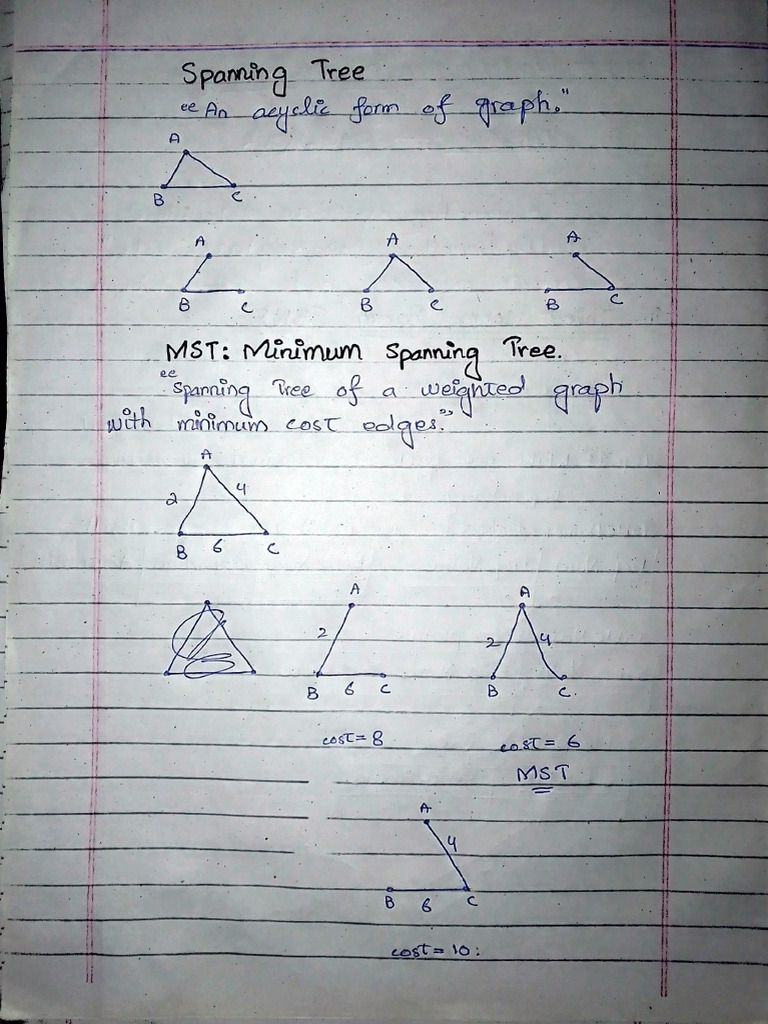 Spanning Tree
"An acyclic form of graph."
A
B C
A A A
B C B C B C
MST: Minimum Spanning Tree.
"Spanning Tree of a weighted graph
with minimum cost edges."
A
2 4
B 6 C
A A
2 2 4
B 6 C B C.
cost = 8 cost = 6
MST
A
4
B 6 C
cost = 10: